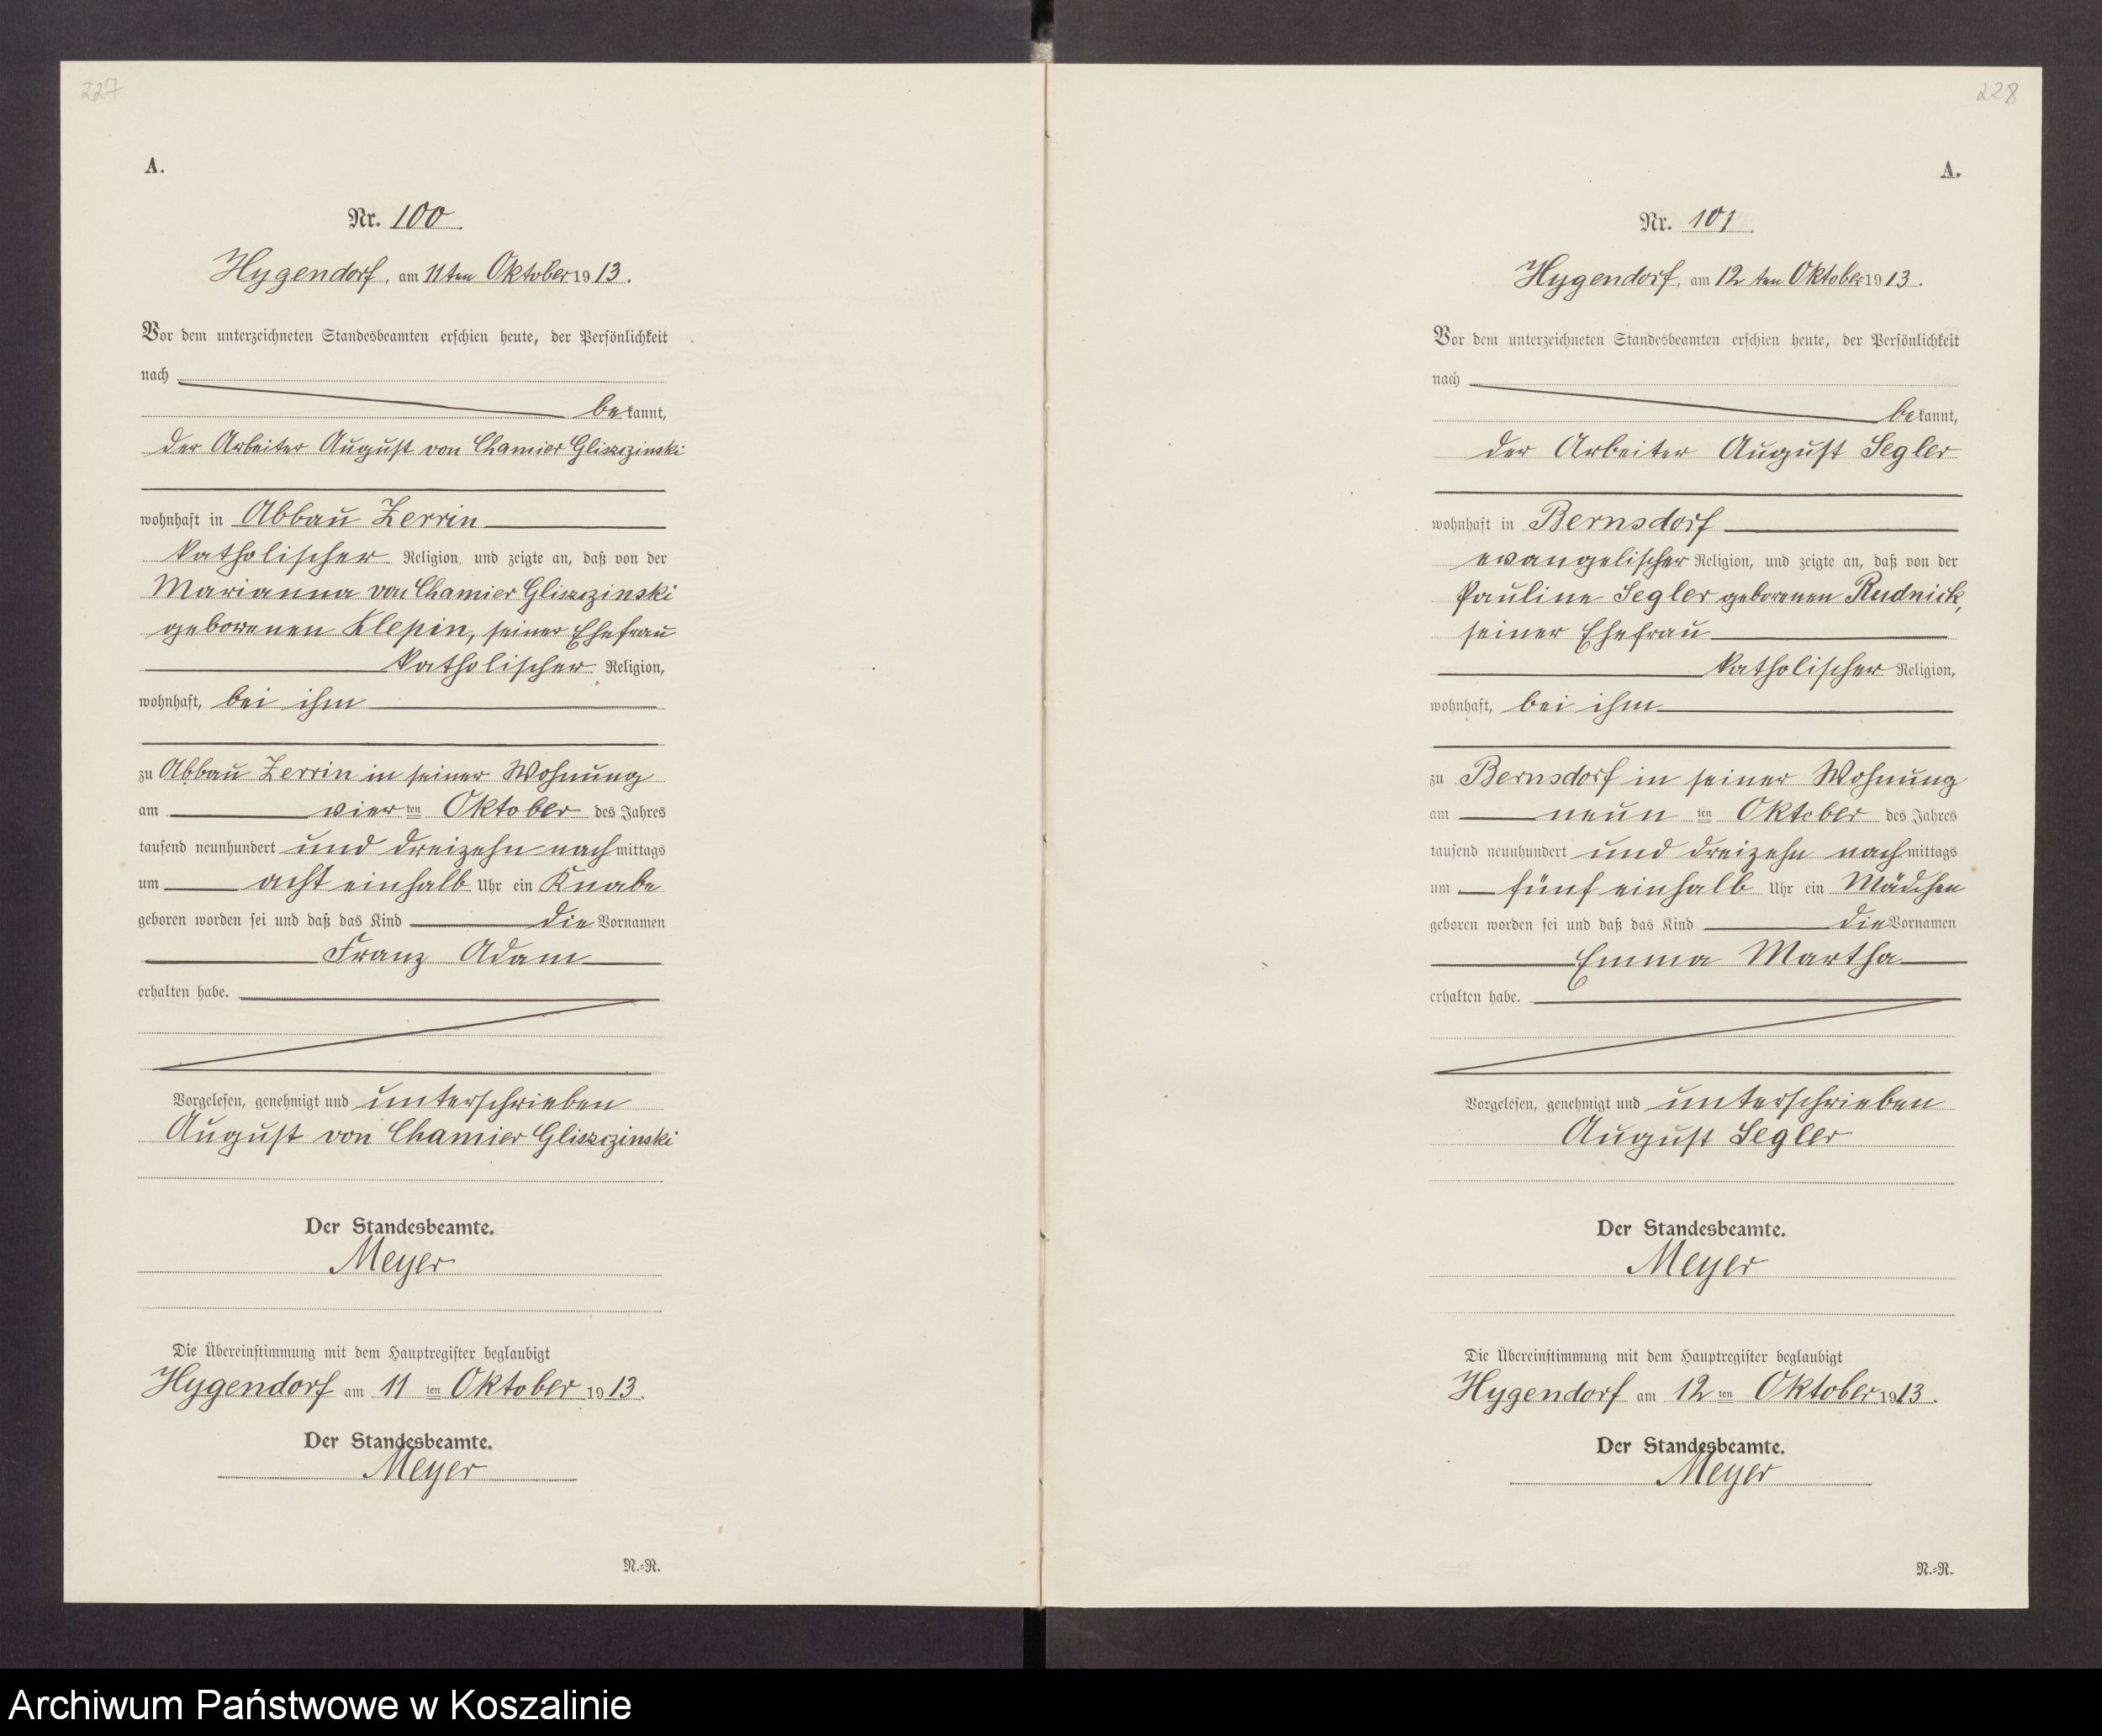 227
A.
Nr. 100.
Hygendorf, am 11ten Oktober 1913.
Vor dem unterzeichneten Standesbeamten erschien heute, der Persönlichkeit
nach
bekannt,
der Arbeiter August von Chamier Gliszczinski
wohnhaft in Abbau Zerrin
katholischer Religion, und zeigte an, daß von der
Marianna von Chamier Gliszczinski
geborenen Klepin, seiner Ehefrau
katholischer Religion,
wohnhaft, bei ihm
zu Abbau Zerrin in seiner Wohnung
am vierten Oktober des Jahres
tausend neunhundert und dreizehn nachmittags
um acht einhalb Uhr ein Knabe
geboren worden sei und daß das Kind die Vornamen
Franz Adam
erhalten habe.
Vorgelesen, genehmigt und unterschrieben
August von Chamier Gliszczinski
Der Standesbeamte.
Meyer
Die Übereinstimmung mit dem Hauptregister beglaubigt
Hygendorf am 11ten Oktober 1913.
Der Standesbeamte.
Meyer
N.=R.
228
A.
Nr. 101.
Hygendorf, am 12ten Oktober 1913.
Vor dem unterzeichneten Standesbeamten erschien heute, der Persönlichkeit
nach
bekannt,
der Arbeiter August Segler
wohnhaft in Bernsdorf
evangelischer Religion, und zeigte an, daß von der
Pauline Segler geborenen Rudnick,
seiner Ehefrau
katholischer Religion,
wohnhaft, bei ihm
zu Bernsdorf in seiner Wohnung
am neunten Oktober des Jahres
tausend neunhundert und dreizehn nachmittags
um fünf einhalb Uhr ein Mädchen
geboren worden sei und daß das Kind die Vornamen
Emma Martha
erhalten habe.
Vorgelesen, genehmigt und unterschrieben
August Segler
Der Standesbeamte.
Meyer
Die Übereinstimmung mit dem Hauptregister beglaubigt
Hygendorf am 12ten Oktober 1913.
Der Standesbeamte.
Meyer
N.=R.
Archiwum Państwowe w Koszalinie